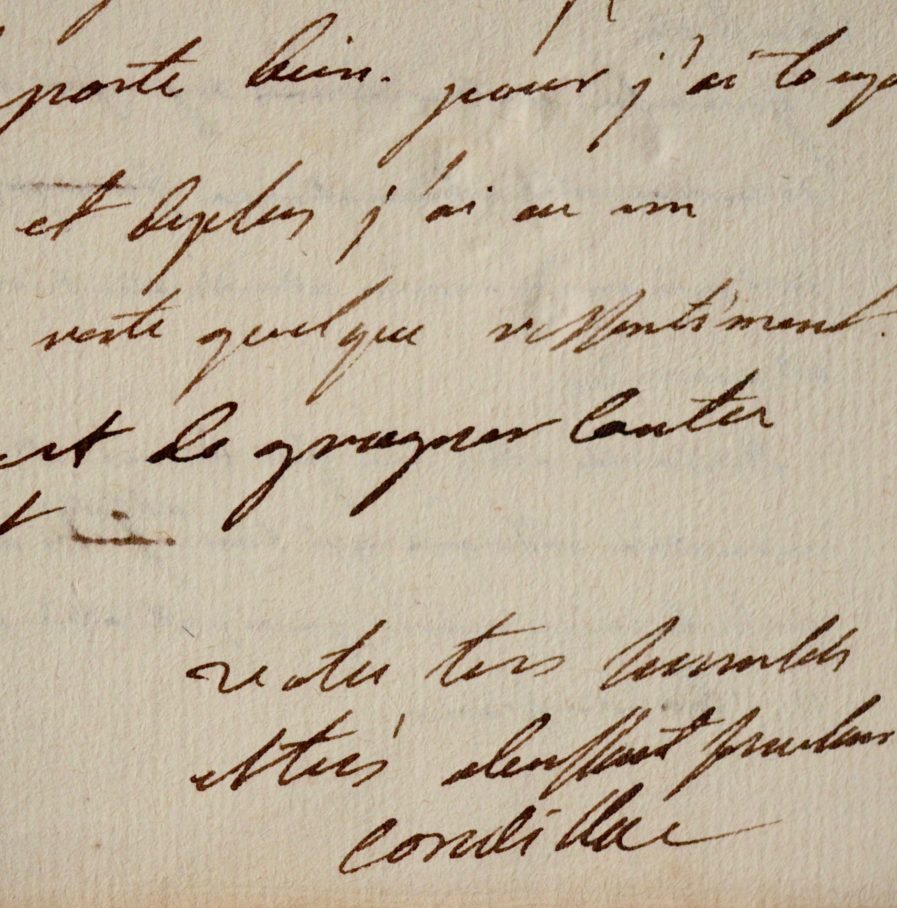 porte bien. pour j'ai toujo
et deplus j'ai eu un
reste quelque ressentiment.
est de gragner
t
votre tres humble
et tres obeissant serviteur
condillac